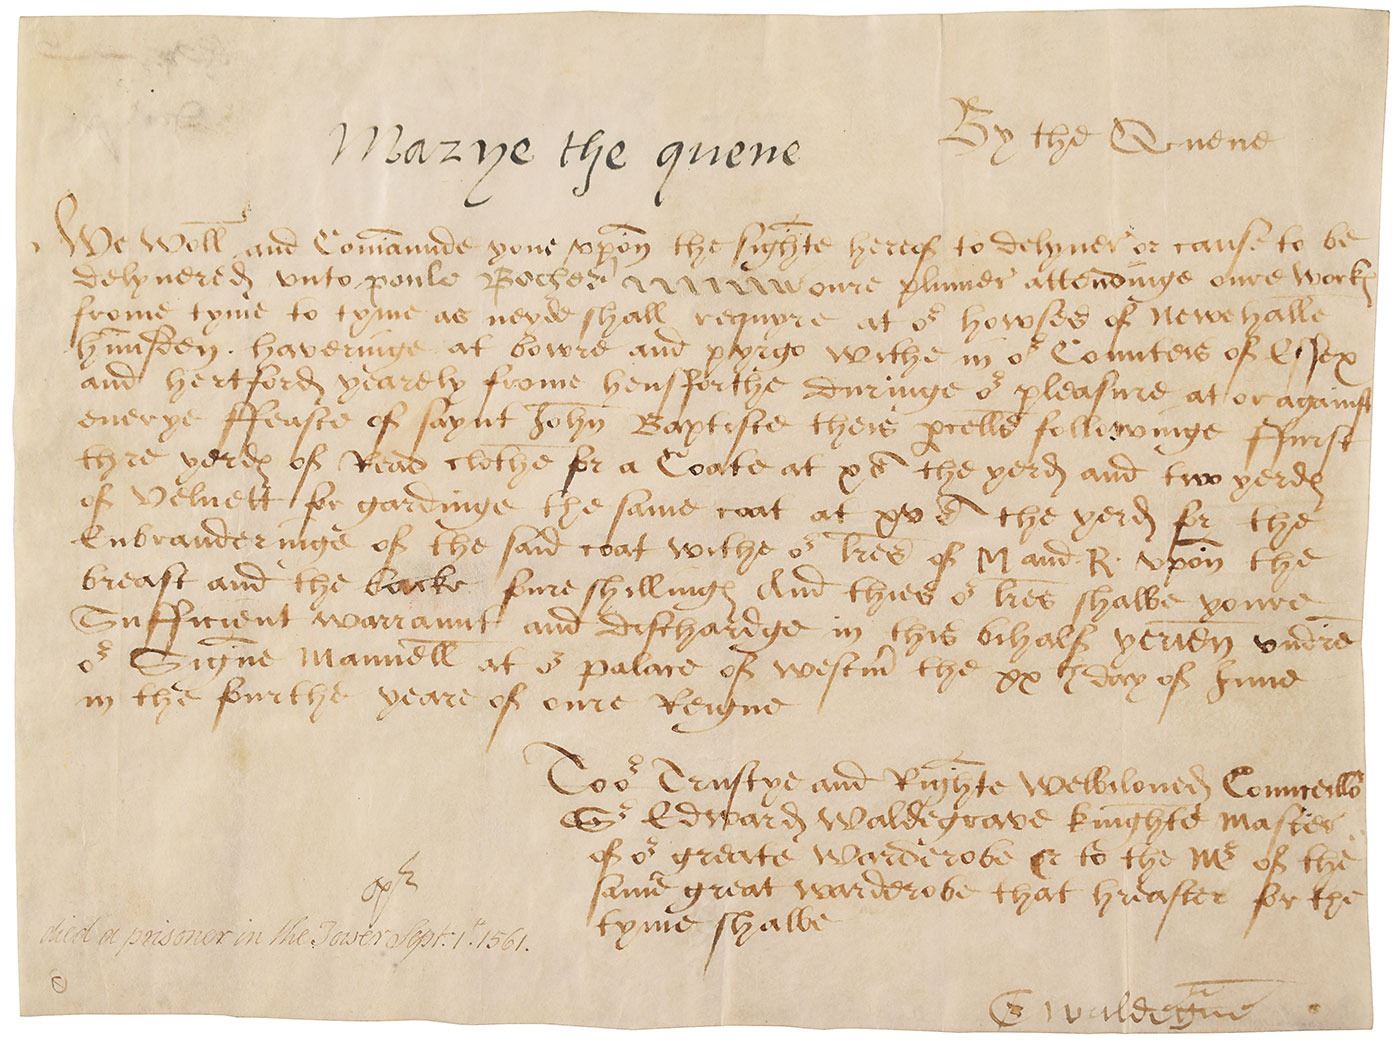 Marye the quene
By the Quene
We Woll and Comaunde youe vppon the sighte hereof to delyuer or cause to be
delyuered vnto poule Bocher oure plumer attendinge oure work
frome tyme to tyme as neyde shall requyre at or howses of Newehalle
Hunsden. haveringe at bowre and pyrgo withe in or Counteis of Essex
and hertford yearely frome hensforthe duringe or pleasure at or against
euerye ffeaste of saynt John Baptiste theis pcells followinge ffurst
thre yerdes of Read clothe for a Coate at xs the yerd and two yerdes
of veluett for gardinge the same coat at xvs the yerd for the
Enbrauderinge of the said coat withe or lres of M and R. vpon the
breast and the backe foure shillinges And thies or lres shalbe youre
Sufficient warraunt and dischardge in this bihalf yeuen vndre
or Signe Manuell at or palace of westm the xx day of June
in the fourthe yeare of oure Reigne
To or Trustye and Righte welbiloued Counceillor
Sr Edward Waldegrave knighte Master
of or greate warderobe or to the Mr of the
same great warderobe that hreafter for the
tyme shalbe
died a prisoner in the Tower Sept. 1st. 1561.
E Waldegraue